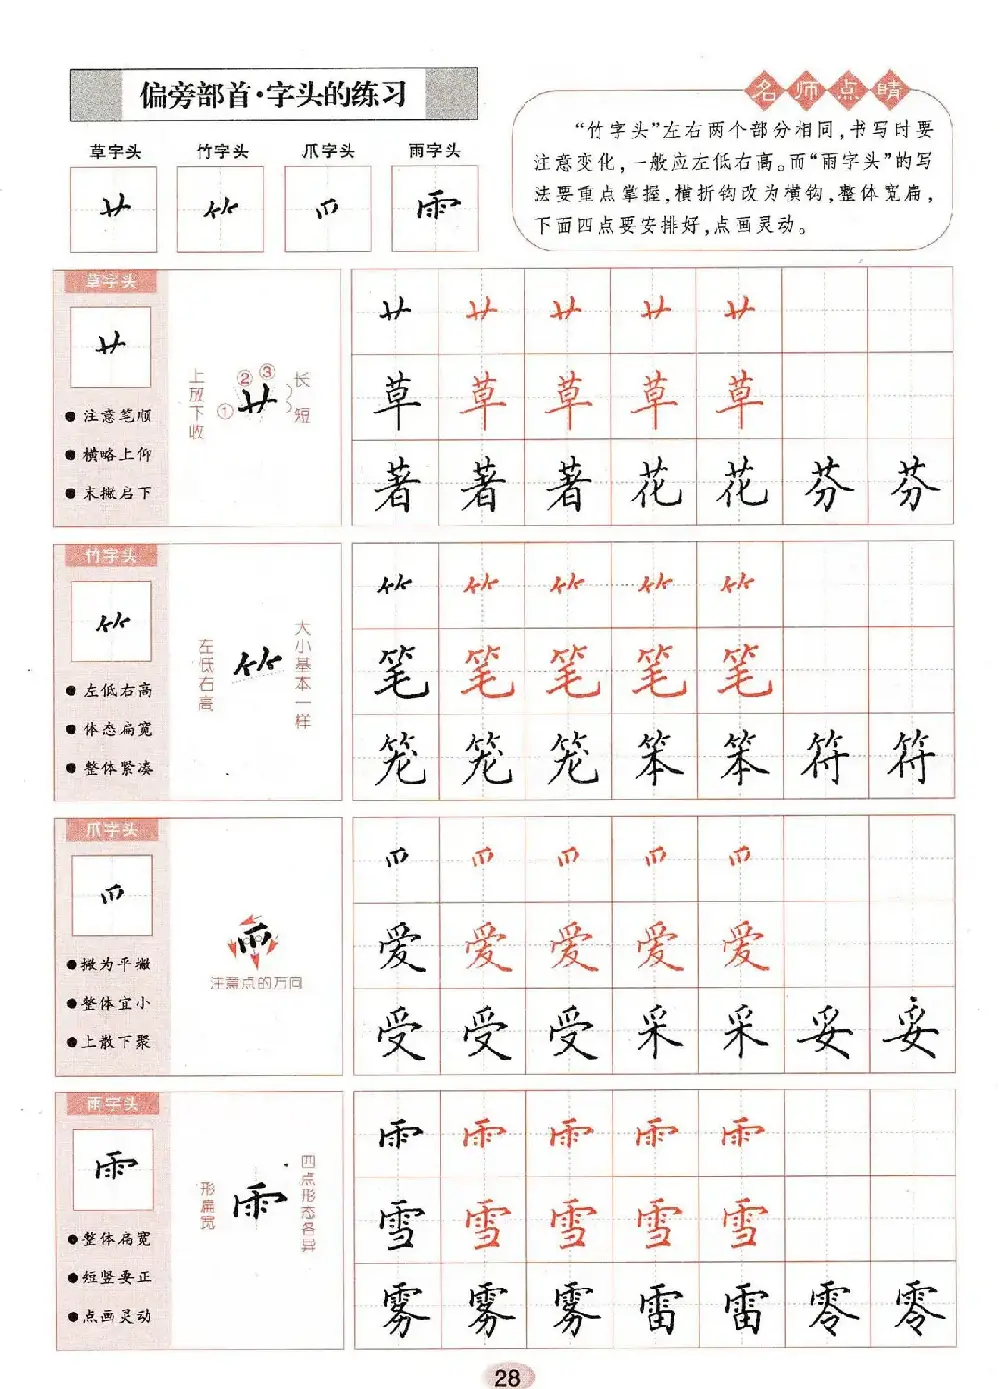 偏旁部首·字头的练习
名师点睛
“竹字头”左右两个部分相同,书写时要
注意变化,一般应左低右高。而“雨字头”的写
法要重点掌握,横折钩改为横钩,整体宽扁,
下面四点要安排好,点画灵动。
草字头 竹字头 爪字头 雨字头
艹 ⺮ 爫 ⻗
草字头
艹
注意笔顺
横略上仰
末撇启下
上放下收
① ② ③
艹
长
短
艹 艹 艹 艹 艹
草 草 草 草 草
著 著 著 花 花 芬 芬
竹字头
⺮
左低右高
体态扁宽
整体紧凑
左低右高
⺮
大小基本一样
⺮ ⺮ ⺮ ⺮ ⺮
笔 笔 笔 笔 笔
笼 笼 笼 笨 笨 符 符
爪字头
爫
撇为平撇
整体宜小
上散下聚
爫
注意点的方向
爫 爫 爫 爫 爫
爱 爱 爱 爱 爱
受 受 受 采 采 妥 妥
雨字头
⻗
整体扁宽
短竖要正
点画灵动
形扁宽
⻗
四点形态各异
⻗ ⻗ ⻗ ⻗ ⻗
雪 雪 雪 雪 雪
雾 雾 雾 雷 雷 零 零
28